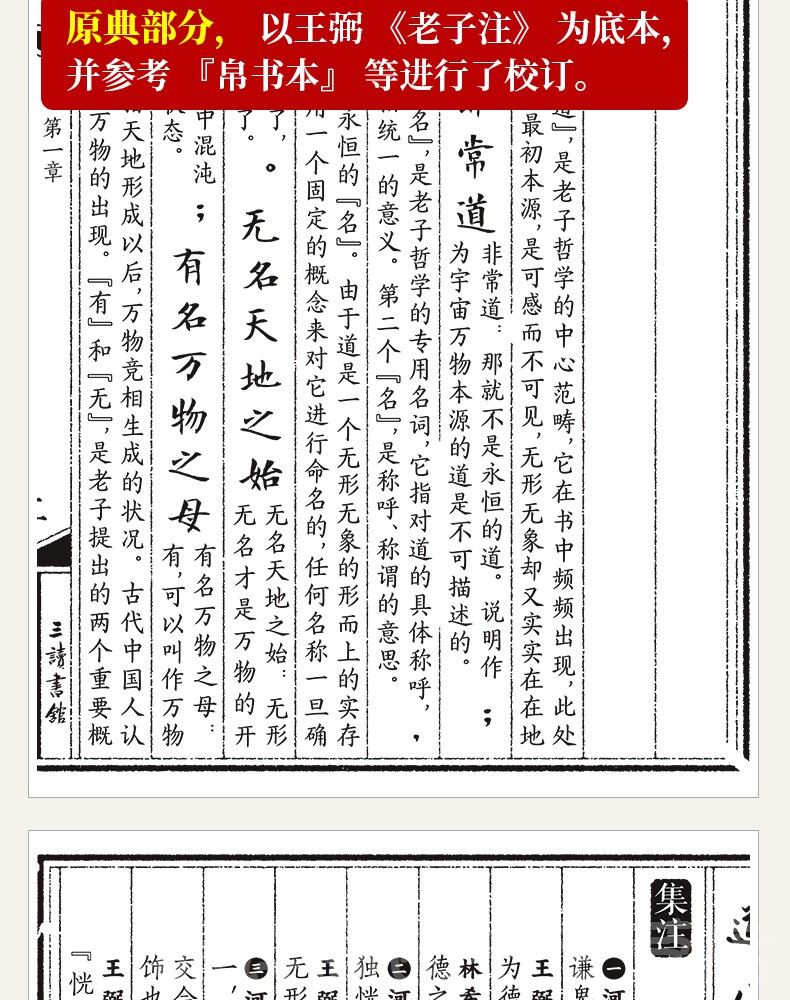 原典部分， 以王弼《老子注》为底本，
并参考『帛书本』等进行了校订。
道』，是老子哲学的中心范畴，它在书中频频出现，此处
最初本源，是可感而不可见，无形无象却又实实在在地
常道
非常道：那就不是永恒的道。说明作
为宇宙万物本源的道是不可描述的。
；
名』，是老子哲学的专用名词，它指对道的具体称呼，
统一的意义。第二个『名』，是称呼、称谓的意思。
，
永恒的『名』。由于道是一个无形无象的形而上的实存
一个固定的概念来对它进行命名的，任何名称一旦确
了，
了。
。无名天地之始
无名天地之始：无形
无名才是万物的开
中混沌
态。
；有名万物之母
有名万物之母：
有，可以叫作万物
天地形成以后，万物竞相生成的状况。古代中国人认
万物的出现。『有』和『无』，是老子提出的两个重要概
第一章
三讀書館
集注
一河
谦
王弼
为德
林希
德之
二河
独恍
王弼
无形
三河
一，
交合
饰也
王弼
『恍